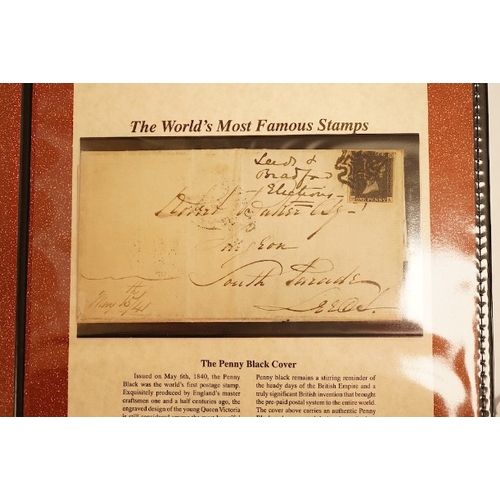 The World's Most Famous Stamps
Leeds &
Bradford
Elections
Robert Esq
Surgeon
South Parade
Leeds.
May 16th/41
ONE PENNY
The Penny Black Cover
Issued on May 6th, 1840, the Penny
Black was the world's first postage stamp.
Exquisitely produced by England's master
craftsmen one and a half centuries ago, the
engraved design of the young Queen Victoria
is still considered among the most beautiful
Penny black remains a stirring reminder of
the heady days of the British Empire and a
truly significant British invention that brought
the pre-paid postal system to the entire world.
The cover above carries an authentic Penny